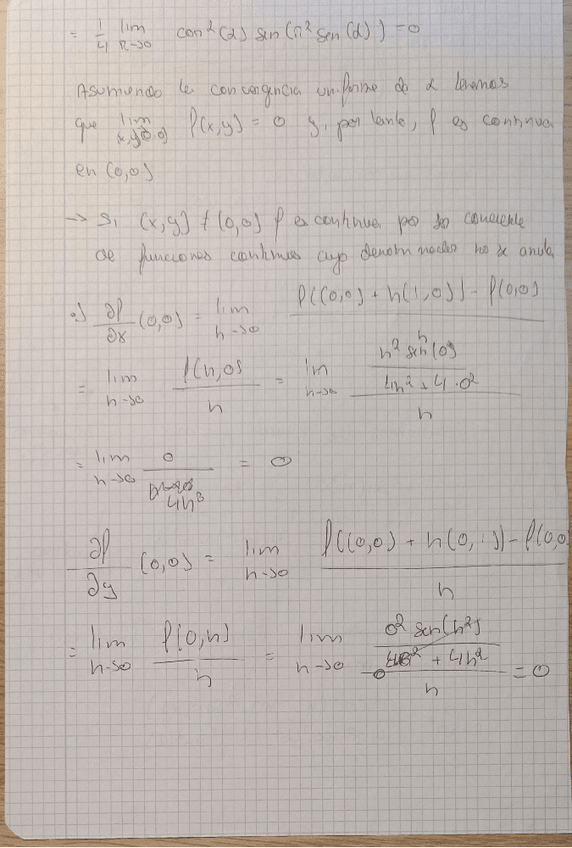 = 1/4 lim R->0 cos²(α) sen(r² sen(α)) = 0
Asumiendo la convergencia uniforme de α tenemos
que lim (x,y)->(0,0) f(x,y) = 0 y, por tanto, f es continua
en (0,0)
-> Si (x,y) ≠ (0,0) f es continua por ser cociente
de funciones continuas cuyo denominador no se anula
∂f/∂x (0,0) = lim h->0 f((0,0) + h(1,0)) - f(0,0)
= lim h->0 f(h,0)/h = lim h->0 (h² sen(0)/(4h² + 4·0²))/h
= lim h->0 0/4h³ = 0
∂f/∂y (0,0) = lim h->0 (f((0,0) + h(0,1)) - f(0,0))/h
= lim h->0 f(0,h)/h = lim h->0 (0² sen(h²)/(4·0² + 4h²))/h = 0